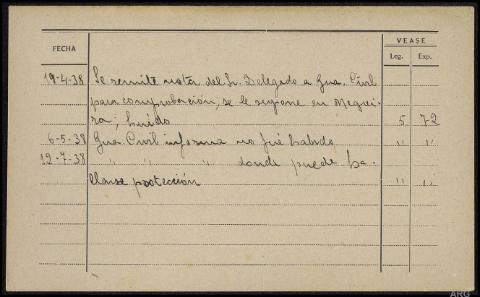 FECHA
VEASE
Leg. Exp.
19-4-38 Se remite nota del Sr. Delegado a Gua. Civil
para comprobación, se le supone en Neguei-
ra; huído 5 72
6-5-38 Gua. Civil informa no fué habido " "
12-7-38 " " " donde puede ha-
llarse protección " "
ARG